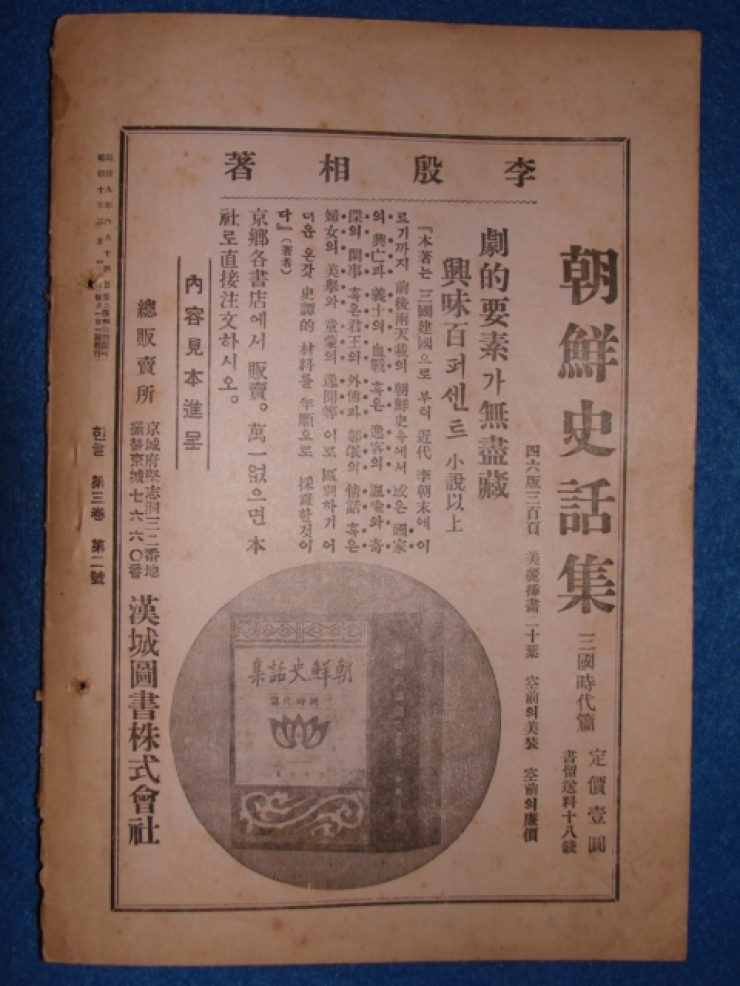 李殷相著
朝鮮史話集 三國時代篇
定價壹圓
書留送料十八錢
四六版三百頁 美麗揷畵二十葉 空前의美裝 空前의廉價
劇的要素가無盡藏
興味百퍼센트 小說以上
『本著는 三國建國으로 부터 近代 李朝末에 이
르기까지 前後兩千載의 朝鮮史속에서 或은 國家
의 興亡과 義士의 血戰 혹은 逸客의 諷喩와 奇
傑의 鬧事 혹은君王의 外傳과 의 情話 혹은
婦女의 美擧와 童蒙의 逸聞等 이로 區別하기 어
려운 온갖 史譚的 材料를 年順으로 採錄한것이
다』(著者)
京鄕各書店에서 販賣。萬一없으면 本
社로直接注文하시오。
內容見本進呈
總販賣所
京城府堅志洞三二番地
振替京城七六六〇番
漢城圖書株式會社
朝鮮史話集
三國時代篇
한글 第三卷 第二號